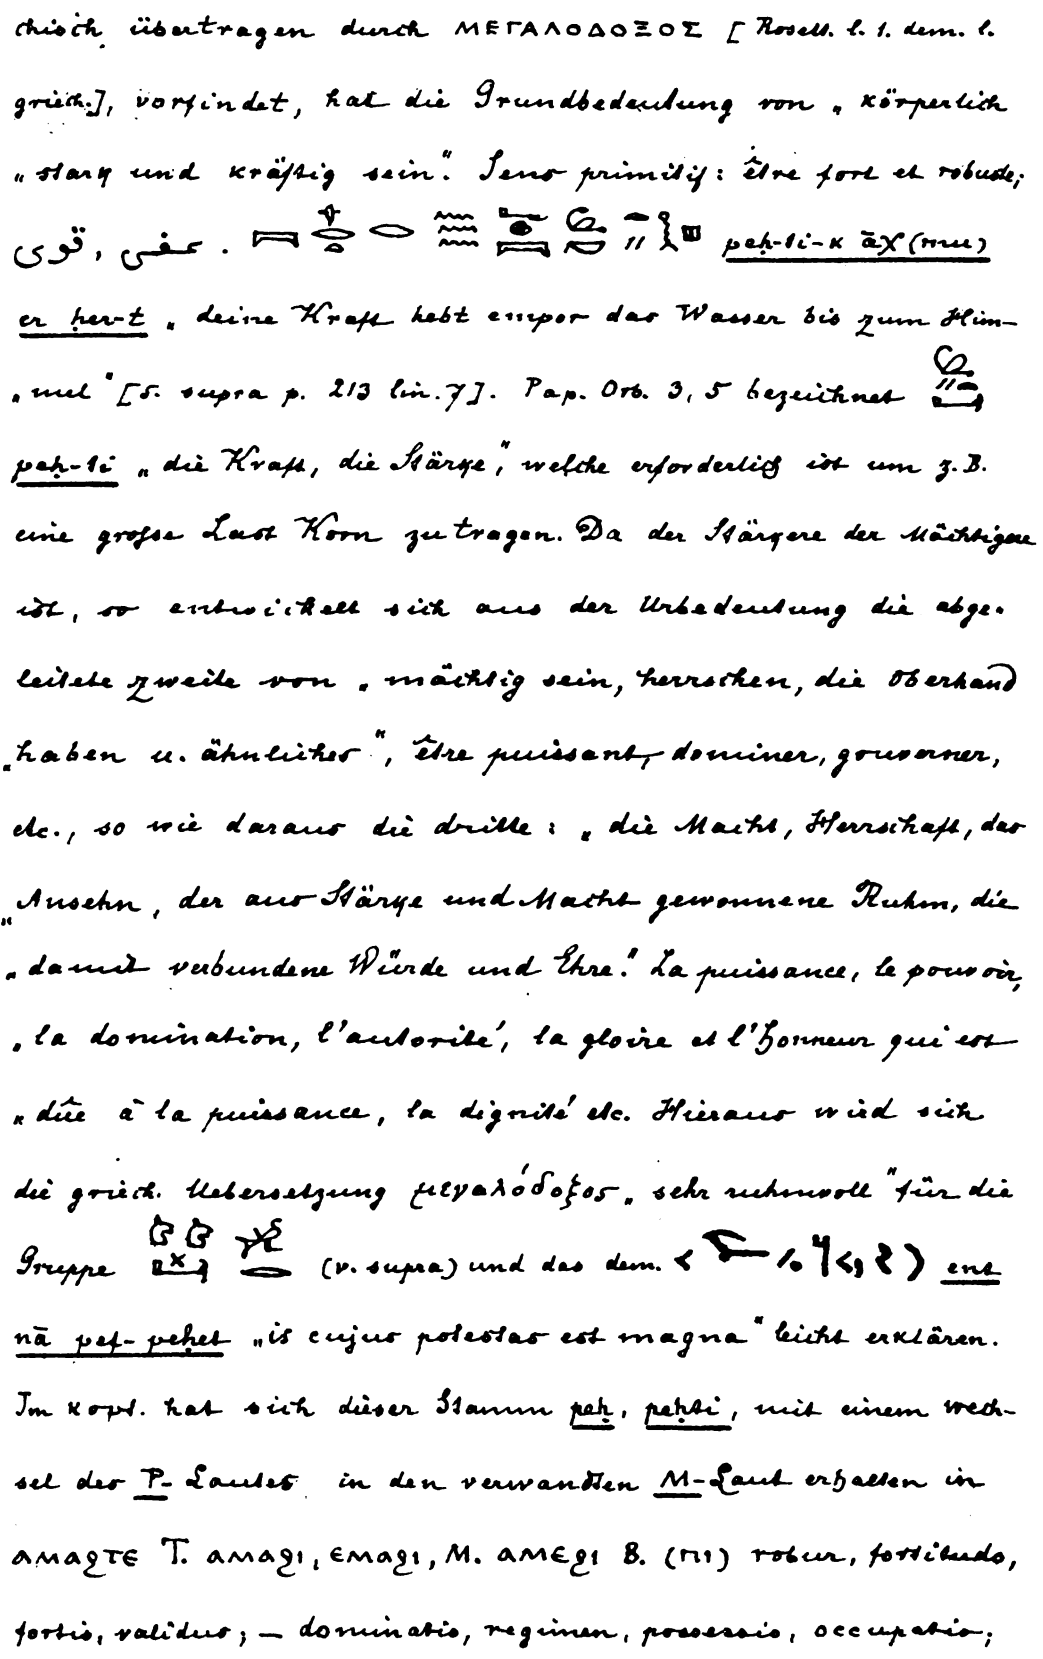 chisch übertragen durch ΜΕΓΑΛΟΔΟΞΟΣ [Rosett. l. 1. dem. l.
griech.], vorfindet, hat die Grundbedeutung von „körperlich
„stark und kräftig sein“. Sens primitif: être fort et robuste;
قوى, عفى. peḥ-ti-k āχ (mu)
er ḥer-t „deine Kraft hebt empor das Wasser bis zum Him-
„mel“ [S. supra p. 213 lin. 7]. Pap. Orb. 3, 5 bezeichnet
peḥ-ti „die Kraft, die Stärke“, welche erforderlich ist um z. B.
eine grosse Last Korn zu tragen. Da der Stärkere der Mächtigere
ist, so entwickelt sich aus der Urbedeutung die abge-
leitete zweite von „mächtig sein, herrschen, die Oberhand
„haben u. ähnliches“, être puissant, dominer, gouverner,
etc., so wie daraus die dritte: „die Macht, Herrschaft, das
„Ansehn, der aus Stärke und Macht gewonnene Ruhm, die
„damit verbundene Würde und Ehre.“ La puissance, le pouvoir,
„la domination, l'autorité, la gloire et l'honneur qui est
„dûe à la puissance, la dignité etc. Hieraus wird sich
die griech. Uebersetzung μεγαλόδοξος „sehr ruhmvoll“ für die
Gruppe (v. supra) und das dem. ent
nā pef-peḥet „is cujus potestas est magna“ leicht erklären.
Im kopt. hat sich dieser Stamm peḥ, peḥti, mit einem Wech-
sel des P-Lautes in den verwandten M-Laut erhalten in
ⲀⲘⲀϨⲦⲈ T. ⲀⲘⲀϨⲒ, ⲈⲘⲀϨⲒ, M. ⲀⲘⲈϨⲒ B. (ⲠⲒ) robur, fortitudo,
fortis, validus; — dominatio, regimen, possessio, occupatio;